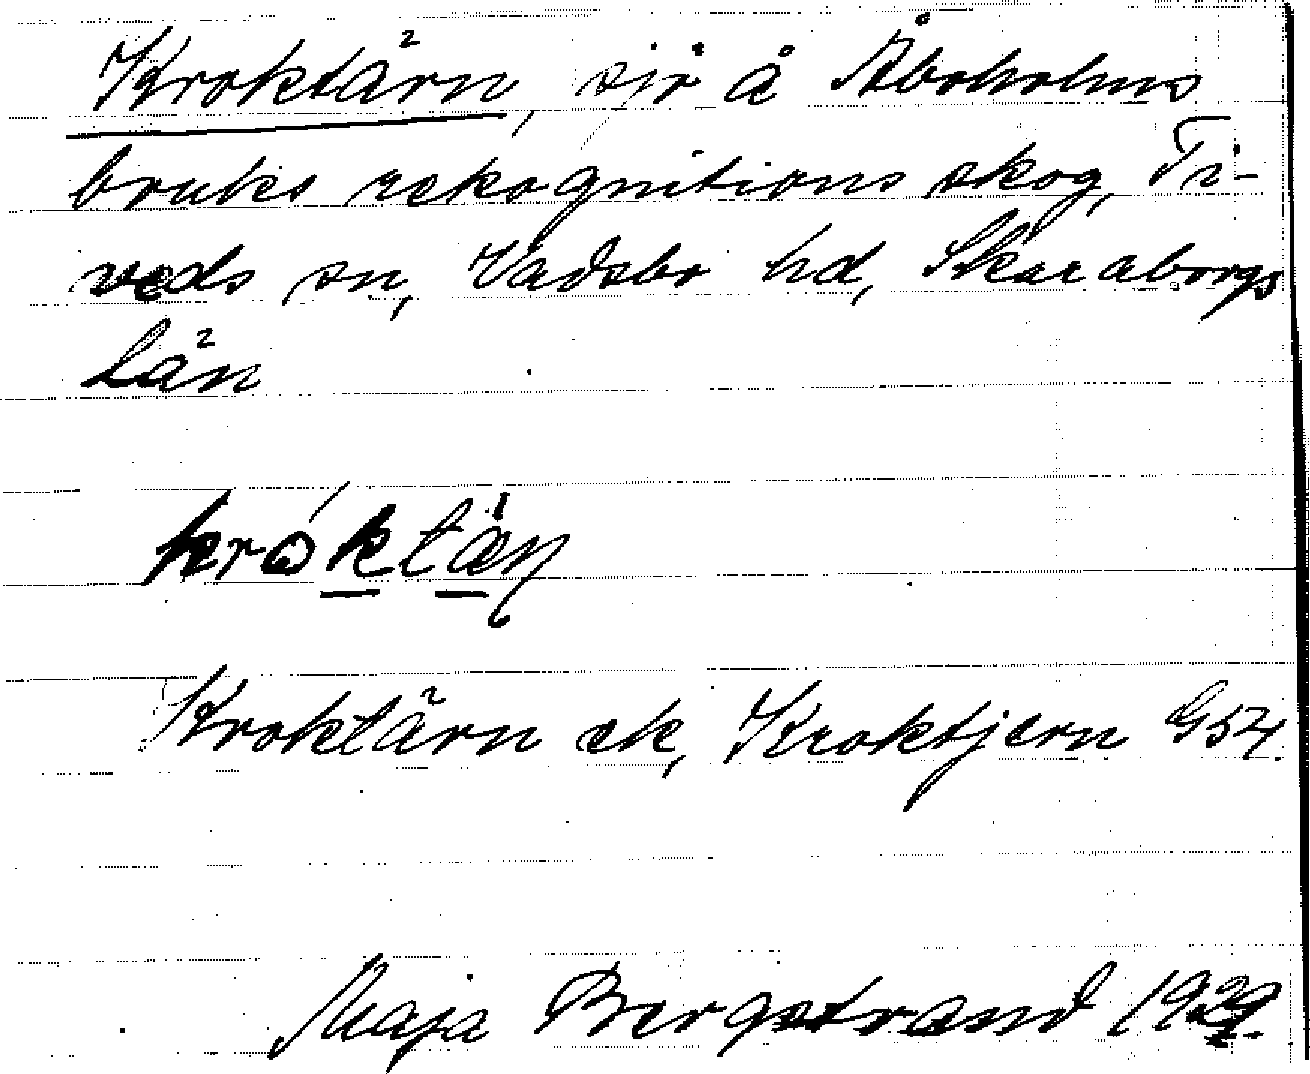 Kroktärn, sjö å Åboholms
bruks rekognitions skog, Ti-
veds sn, Vadsbo hd, Skaraborgs
Län
króktäṇ
Kroktärn ek, Kroktjern G54.
Maja Bergstrand